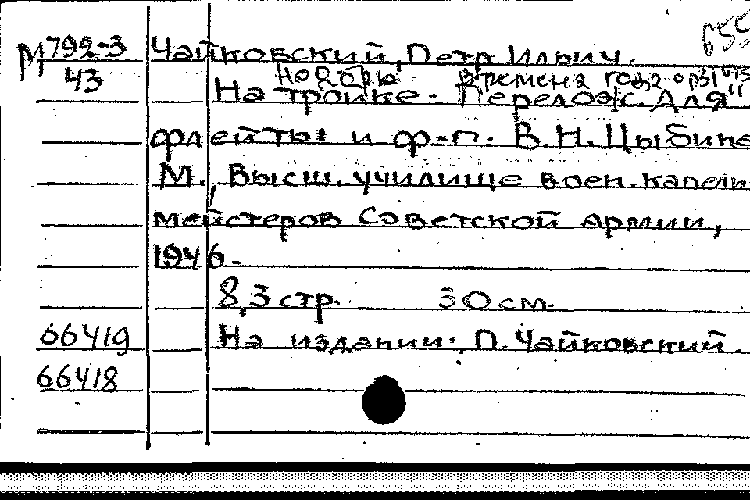 655
М 792-3 Чайковский, Петр Ильич.
43 Ноябрь Времена года ор37
На тройке. Перелож. для
флейты и ф-п. В.Н. Цыбине
М., Высш. училище воен. капель
мейстеров Советской Армии,
1946.
8,3 стр. 30 см.
66419 На издании: П. Чайковский.
66418